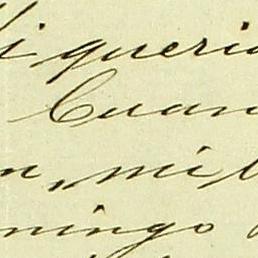 i queri
Cuan
n, mi
mingo